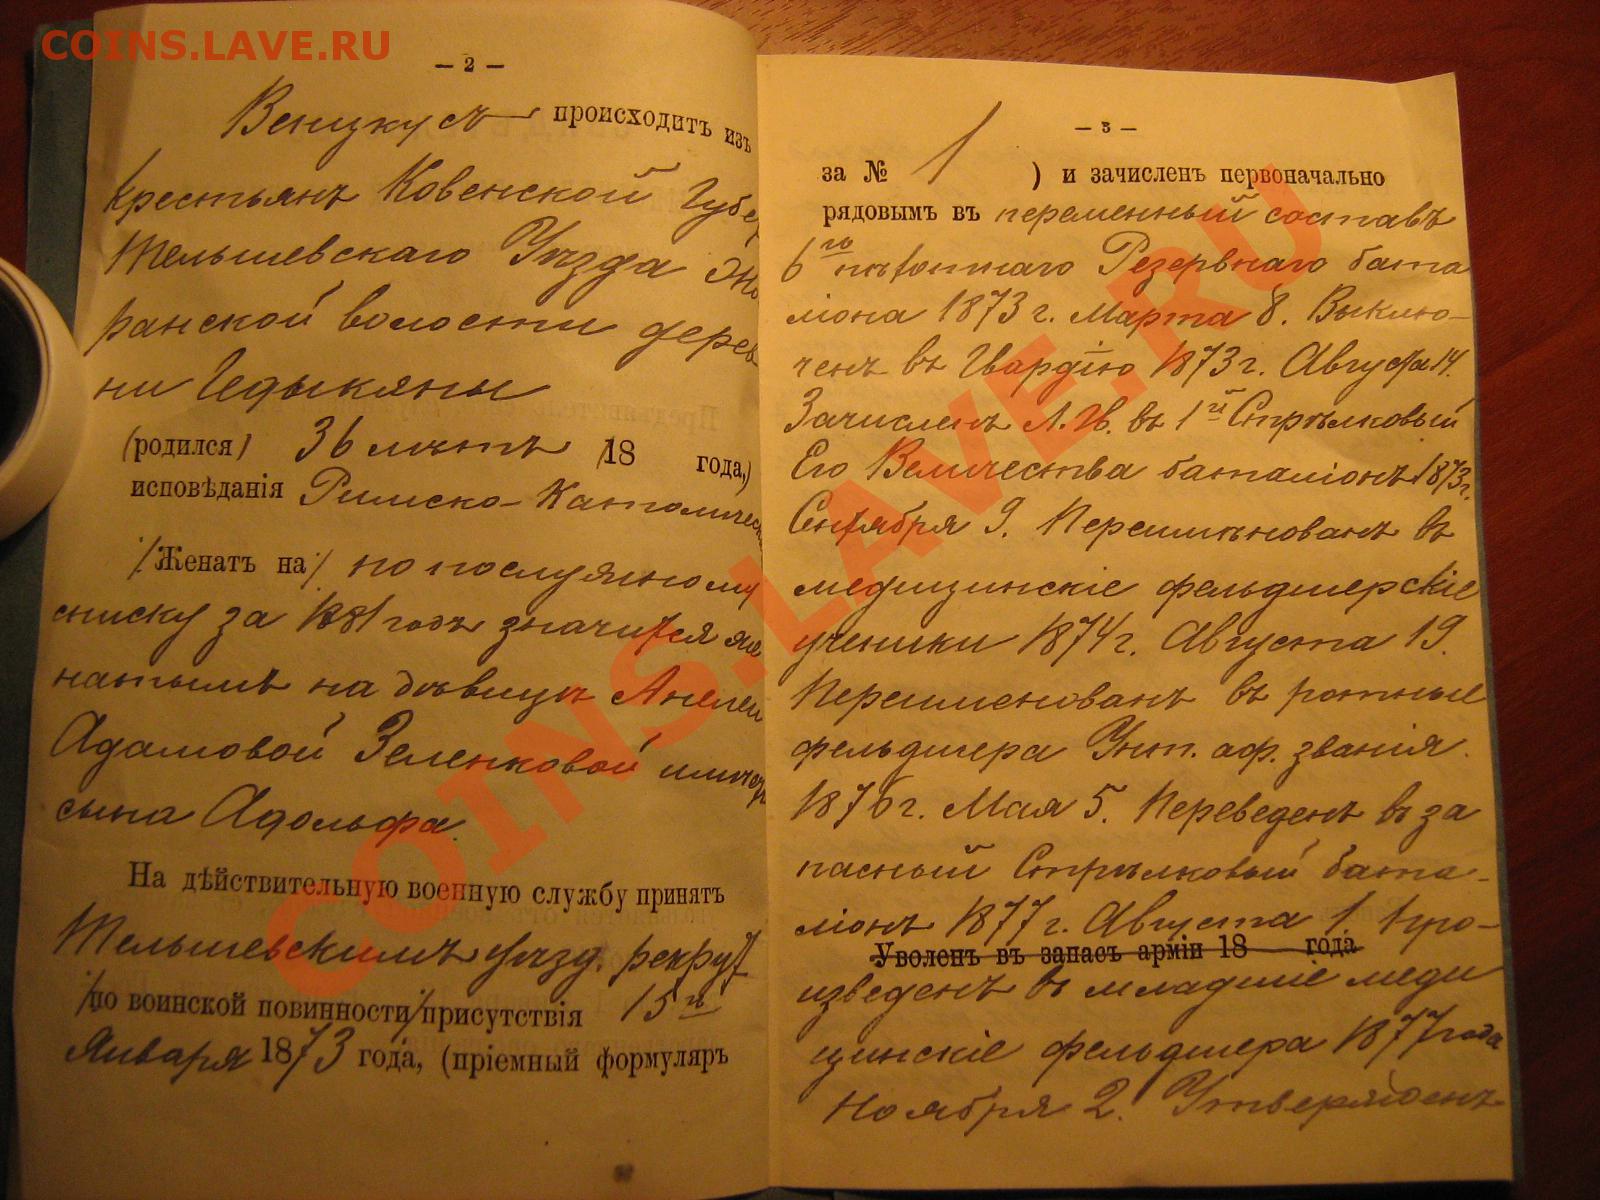 COINS.LAVE.RU
— 2 —
Венцкусъ происходитъ изъ
крестьянъ Ковенской Губер
Тельшевскаго Уѣзда Жо
ранской волости дерев
ни Гедыкяны
(родился) 36 лѣтъ /18 года,)
исповѣданія Римско-Католическ
/Женатъ на/ по послужному
списку за 1881 годъ значится же
натымъ на дѣвицѣ Анелеи
Адамовой Зеленковой имѣетъ
сына Адольфа.
На дѣйствительную военную службу принятъ
Тельшевскимъ уѣзд. рекрут
/по воинской повинности/ присутствія 15го
Января 1873 года, (пріемный формуляръ
— 3 —
за № 1 ) и зачисленъ первоначально
рядовымъ въ переменный составъ
6го пѣхотнаго Резервнаго бата
ліона 1873 г. Марта 8. Выклю-
ченъ въ Гвардію 1873 г. Августа 14.
Зачисленъ Л. Гв. въ 1й Стрѣлковый
Его Величества баталіонъ 1873 г.
Сентября 9. Переименованъ въ
медицинскіе фельдшерскіе
ученики 1874 г. Августа 19.
Переименованъ въ ротные
фельдшера Унт. оф. званія.
1876 г. Мая 5. Переведенъ въ за
пасный Стрѣлковый бата-
ліонъ 1877 г. Августа 1. Про-
Уволенъ въ запасъ арміи 18 года
изведенъ въ младшіе меди
цинскіе фельдшера 1877 года
Ноября 2. Утвержденъ
COINS.LAVE.RU